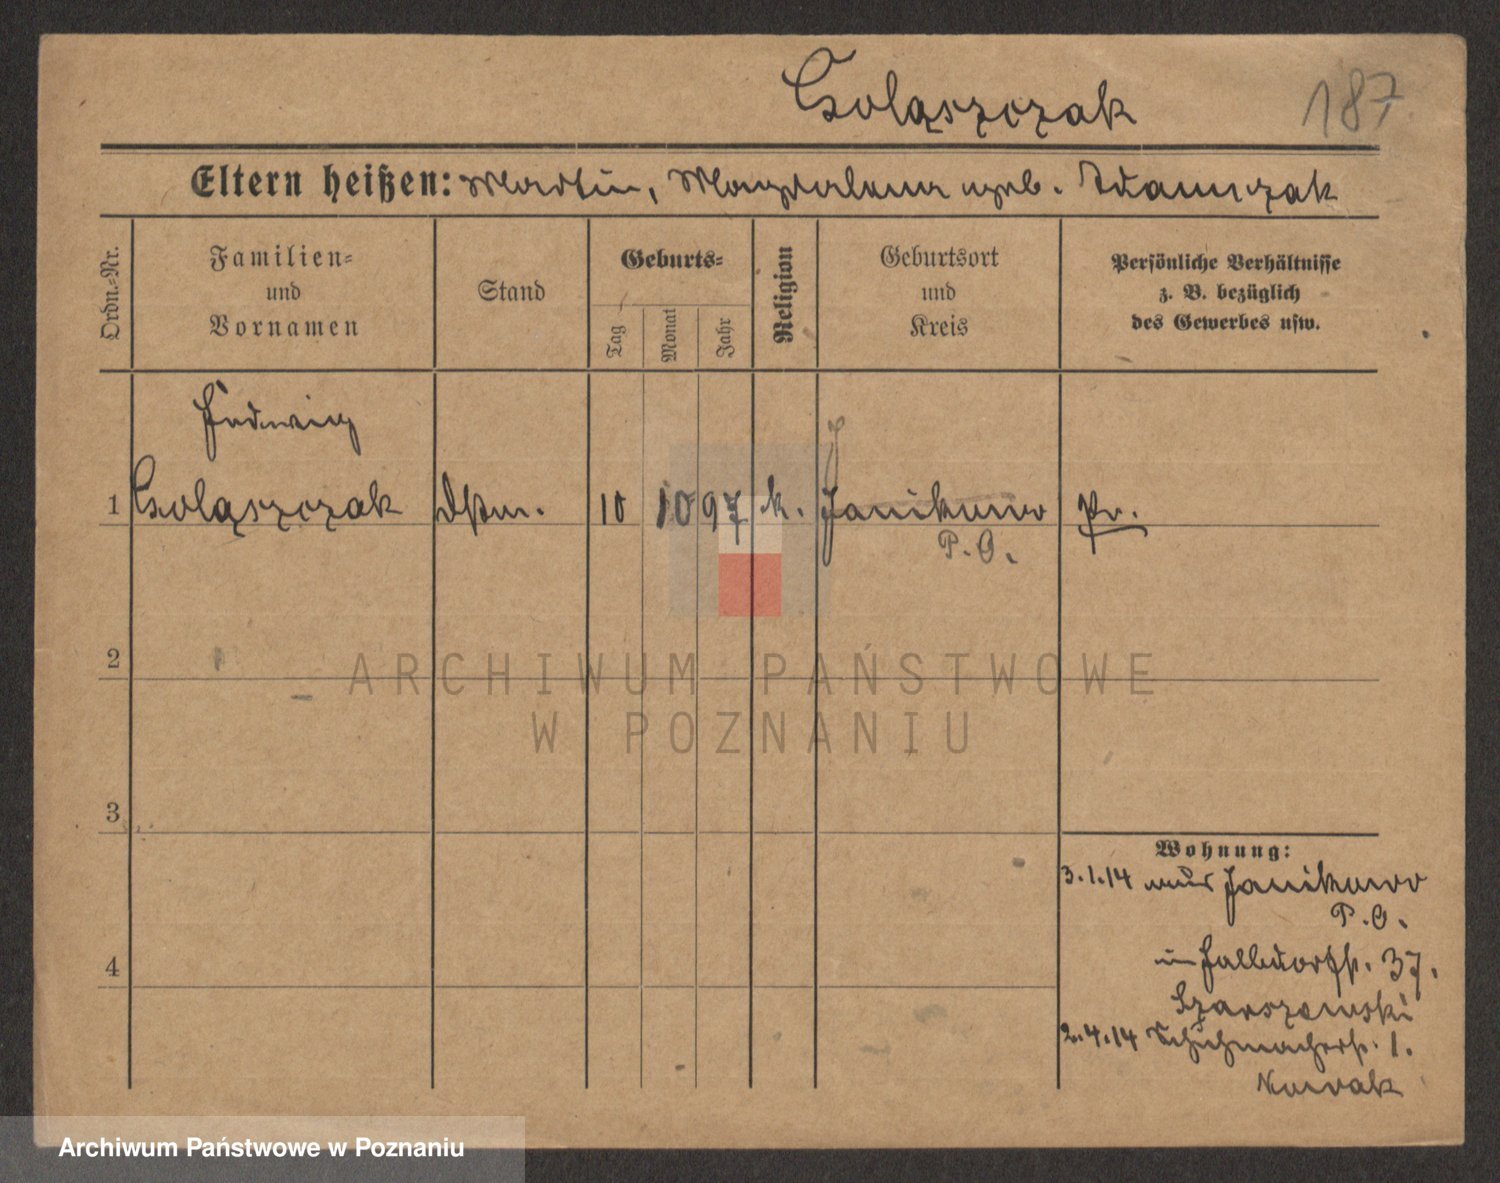 Golaszczak
187
Eltern heißen: Martin, Magdalena geb. Adamczak
Ordn.-Nr.
Familien-
und
Vornamen
Stand
Geburts-
Tag
Monat
Jahr
Religion
Geburtsort
und
Kreis
Persönliche Verhältnisse
z. B. bezüglich
des Gewerbes usw.
Ludwig
1 Golaszczak 10 10 97 k. Janikowo Pr.
P. O.
2
ARCHIWUM PAŃSTWOWE
W POZNANIU
3
Wohnung:
3.1.14 aus Janikowo
P. O.
4
in Halbdorfstr. 37.
2.4.14 Schuhmacherstr. 1.
Nowak
Archiwum Państwowe w Poznaniu